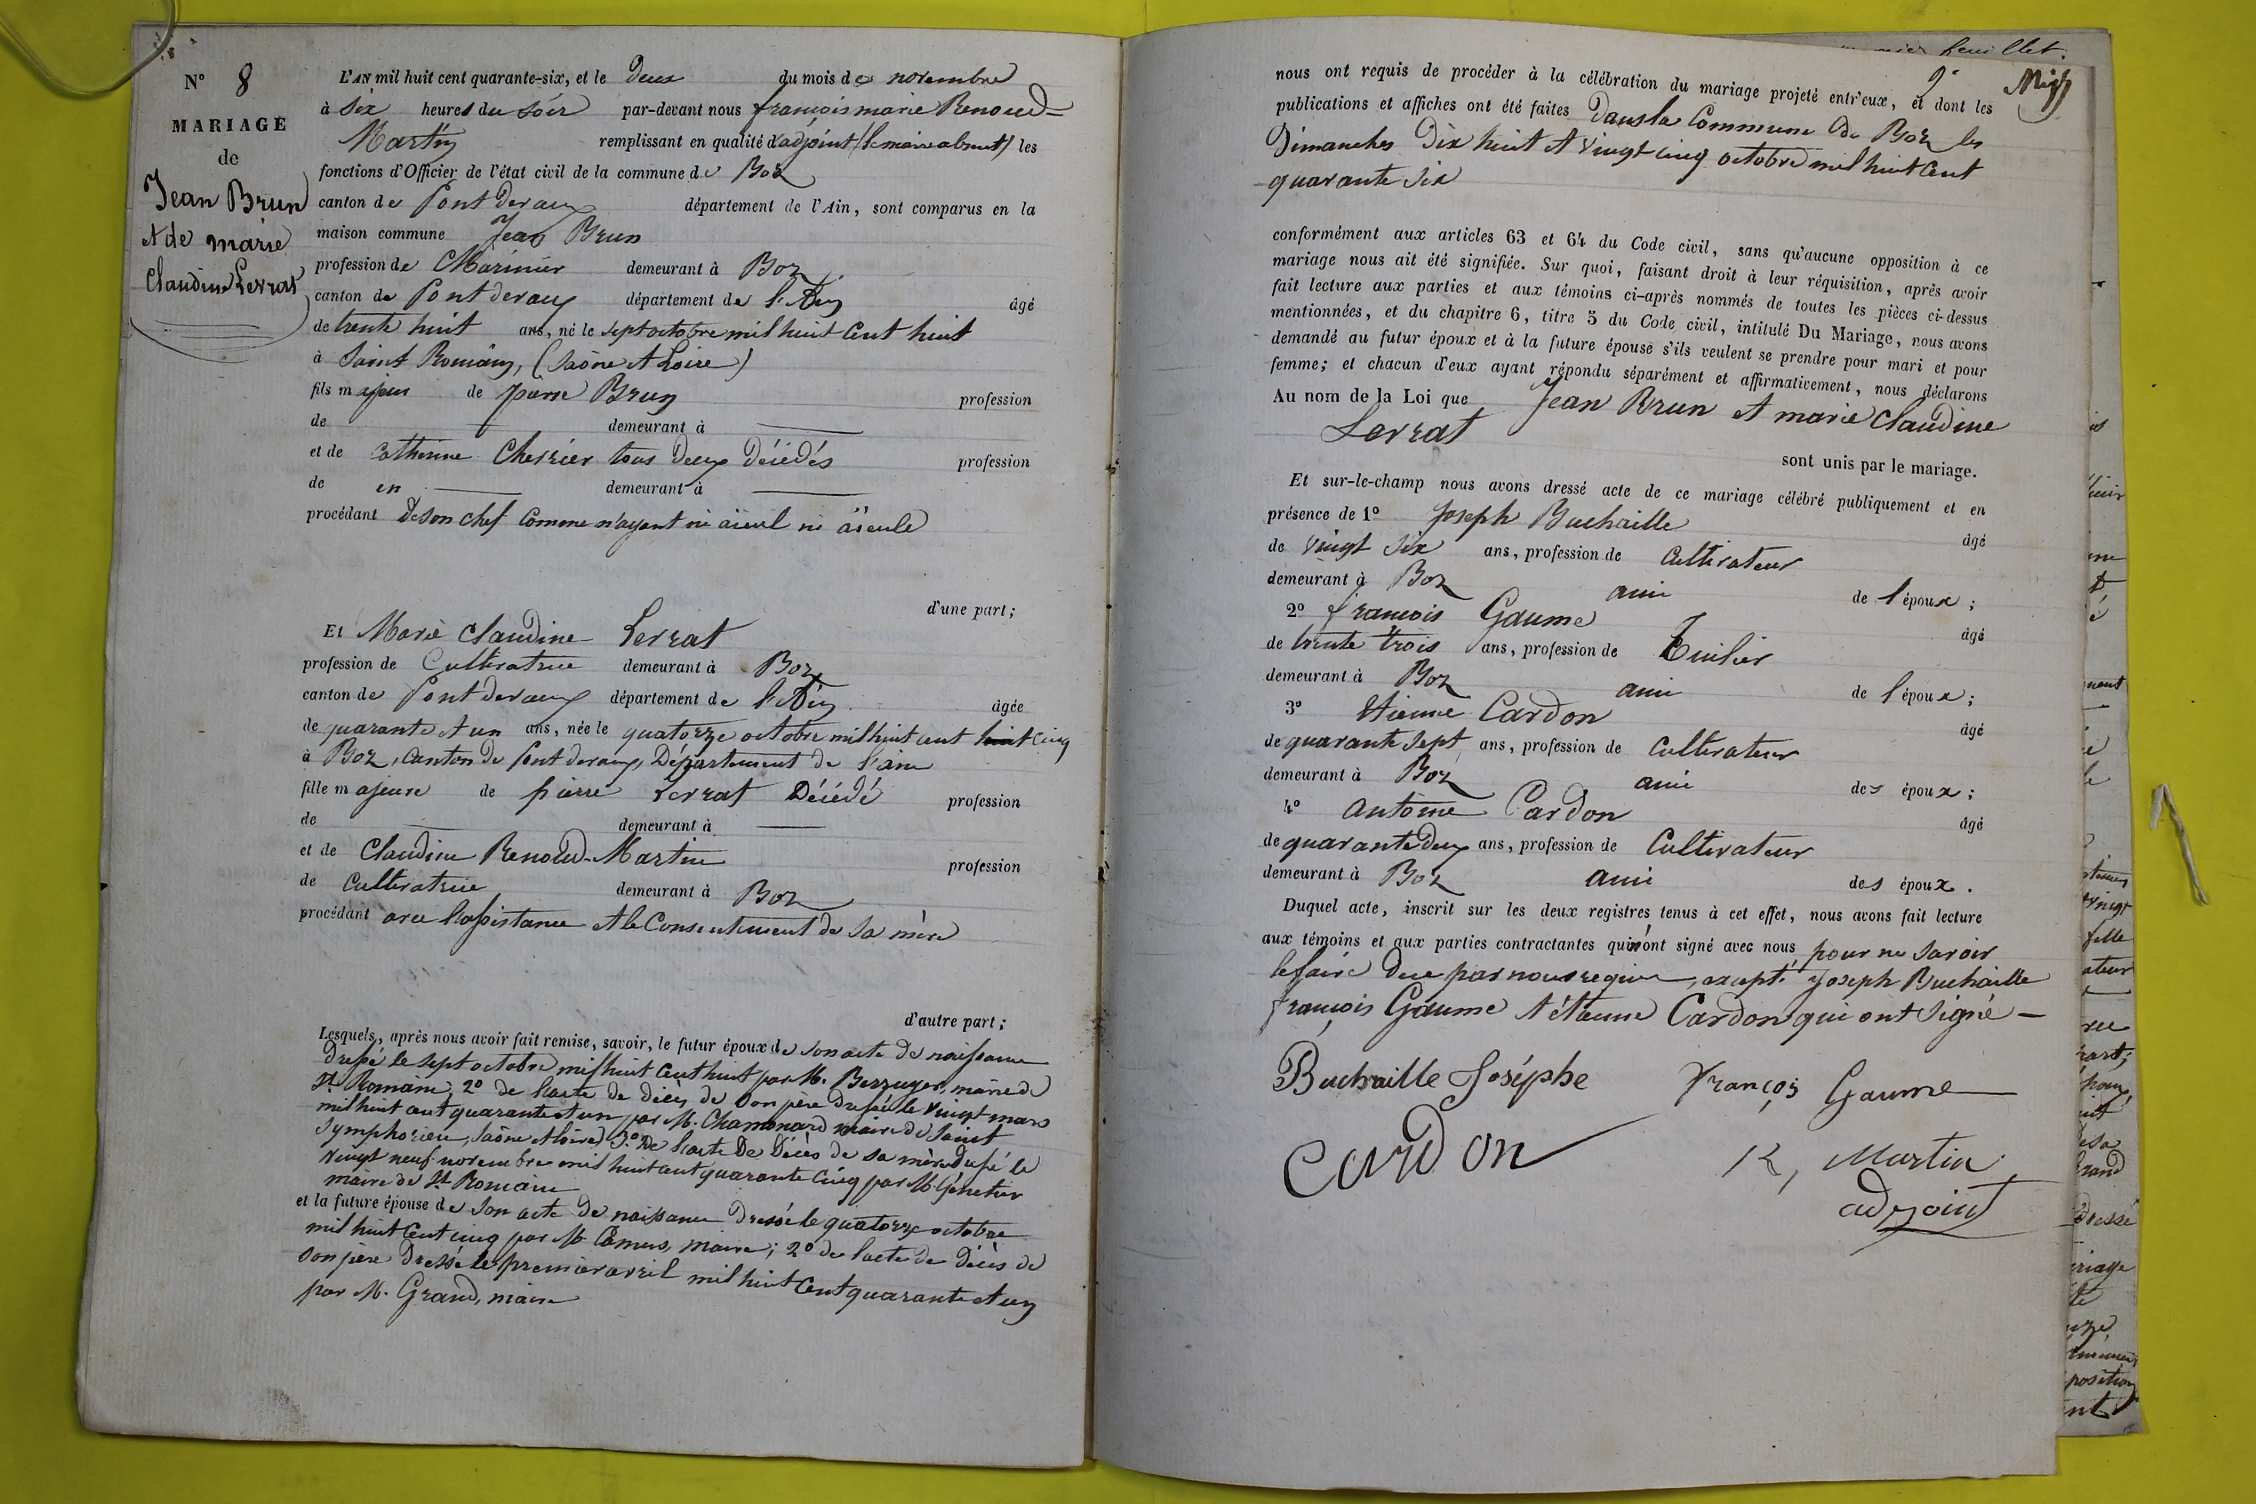 N° 8
MARIAGE
de
Jean Brun
et de marie
Claudine Serrat
L'AN mil huit cent quarante-six, et le Deux du mois de novembre
à Six heures du soir par-devant nous françois marie Renoud-
Martin remplissant en qualité d'adjoint (le maire absent) les
fonctions d'Officier de l'état civil de la commune de Boz
canton de Pont devaux département de l'Ain, sont comparus en la
maison commune Jean Brun
profession de Marinier demeurant à Boz
canton de Pont devaux département de l'Ain âgé
de trente huit ans, né le sept octobre mil huit cent huit
à Saint Romain, (Saône et Loire)
fils majeur de pierre Brun profession
de demeurant à
et de Catherine Chervier tous deux décédés profession
de en demeurant à
procédant de son chef comme n'ayant ni aïeul ni aïeule
d'une part;
Et Marie Claudine Serrat
profession de Cultivatrice demeurant à Boz
canton de Pont devaux département de l'Ain âgée
de quarante et un ans, née le quatorze octobre mil huit cent huit cinq
à Boz, canton de Pont devaux, Département de l'ain
fille majeure de pierre Serrat Décédé profession
de demeurant à
et de Claudine Renoud-Martin profession
de Cultivatrice demeurant à Boz
procédant avec l'assistance et le Consentement de sa mère
d'autre part;
Lesquels, après nous avoir fait remise, savoir, le futur époux de son acte de naissance
dressé le sept octobre mil huit cent huit par M. maire de
St Romain; 2° de l'acte de décès de son père dressé le vingt mars
mil huit cent quarante et un par M. Chamonard maire de Saint
Symphorien, Saône et Loire; 3° de l'acte De Décès de sa mère dressé le
vingt neuf novembre mil huit cent quarante cinq par M.
maire de St Romain
et la future épouse de son acte de naissance Dressé le quatorze octobre
mil huit cent cinq par M. Camus, maire; 2° de l'acte de décès de
son père Dressé le premier avril mil huit Cent quarante et un
par M. Grand, maire
nous ont requis de procéder à la célébration du mariage projeté entr'eux, et dont les
publications et affiches ont été faites Dans la Commune de Boz les
Dimanches Dix huit et vingt cinq octobre mil huit Cent
quarante six
conformément aux articles 63 et 64 du Code civil, sans qu'aucune opposition à ce
mariage nous ait été signifiée. Sur quoi, faisant droit à leur réquisition, après avoir
fait lecture aux parties et aux témoins ci-après nommés de toutes les pièces ci-dessus
mentionnées, et du chapitre 6, titre 5 du Code civil, intitulé Du Mariage, nous avons
demandé au futur époux et à la future épouse s'ils veulent se prendre pour mari et pour
femme; et chacun d'eux ayant répondu séparément et affirmativement, nous déclarons
Au nom de la Loi que Jean Brun et marie Claudine
Serrat
sont unis par le mariage.
Et sur-le-champ nous avons dressé acte de ce mariage célébré publiquement et en
présence de 1° Joseph Buchaille âgé
de vingt six ans, profession de Cultivateur
demeurant à Boz ami de l'époux;
2° françois Gaume âgé
de trente trois ans, profession de Tuilier
demeurant à Boz ami de l'époux;
3° Etienne Cardon âgé
de quarante sept ans, profession de Cultivateur
demeurant à Boz ami des époux;
4° antoine Cardon âgé
de quarante deux ans, profession de Cultivateur
demeurant à Boz ami des époux.
Duquel acte, inscrit sur les deux registres tenus à cet effet, nous avons fait lecture
aux témoins et aux parties contractantes qui n'ont signé avec nous pour ne savoir
le faire Due par nous requis, excepté Joseph Buchaille
françois Gaume et étienne Cardon qui ont signé —
Buchaille Joséphe François Gaume
CARDON R, Martin
adjoint